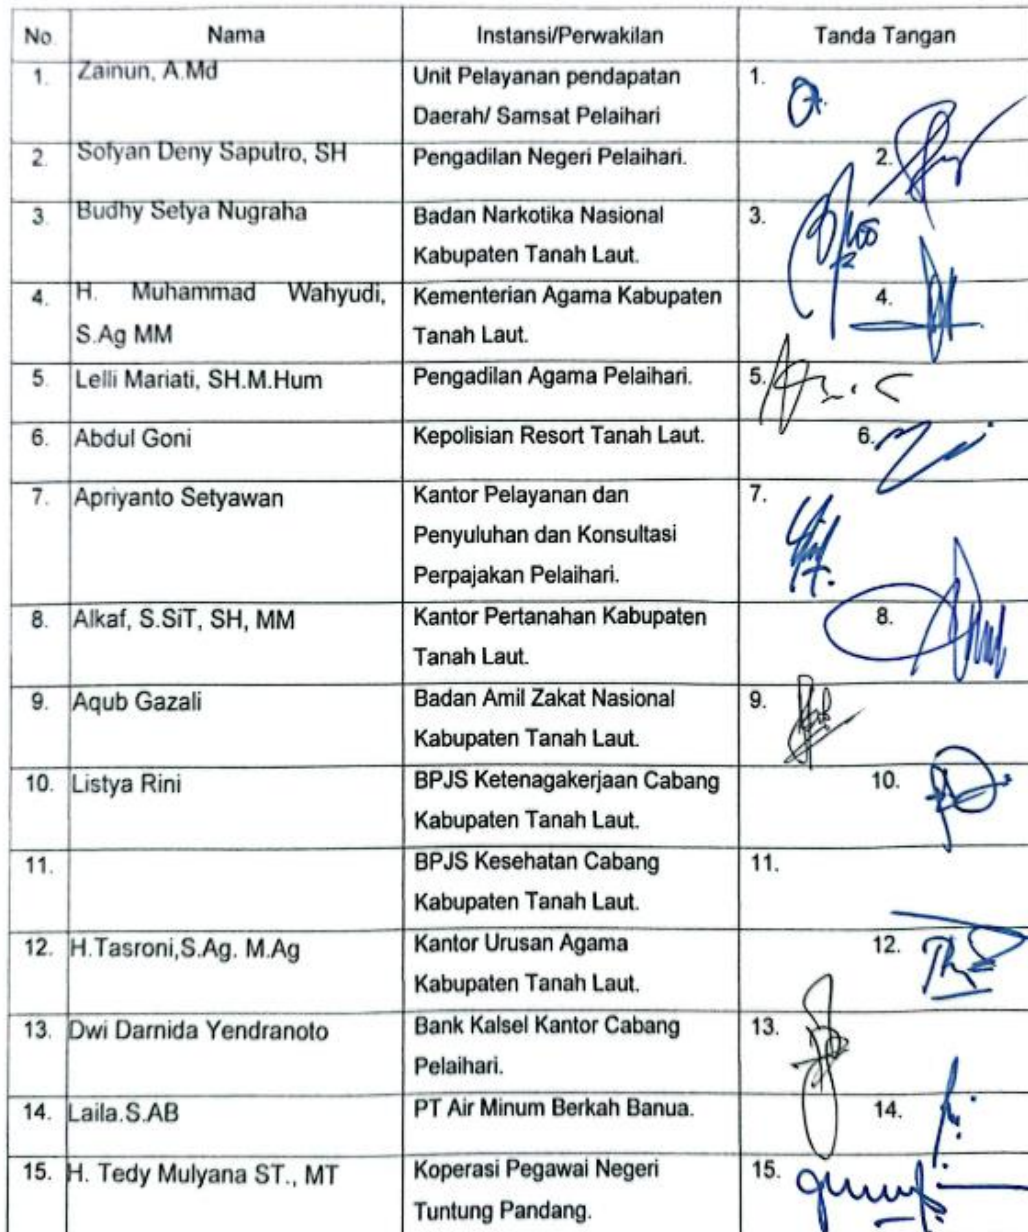 No. Nama Instansi/Perwakilan Tanda Tangan
1. Zainun, A.Md Unit Pelayanan pendapatan 1.
Daerah/ Samsat Pelaihari
2. Sofyan Deny Saputro, SH Pengadilan Negeri Pelaihari. 2.
3. Budhy Setya Nugraha Badan Narkotika Nasional 3.
Kabupaten Tanah Laut.
4. H. Muhammad Wahyudi, Kementerian Agama Kabupaten 4.
S.Ag MM Tanah Laut.
5. Lelli Mariati, SH.M.Hum Pengadilan Agama Pelaihari. 5.
6. Abdul Goni Kepolisian Resort Tanah Laut. 6.
7. Apriyanto Setyawan Kantor Pelayanan dan 7.
Penyuluhan dan Konsultasi
Perpajakan Pelaihari.
8. Alkaf, S.SiT, SH, MM Kantor Pertanahan Kabupaten 8.
Tanah Laut.
9. Aqub Gazali Badan Amil Zakat Nasional 9.
Kabupaten Tanah Laut.
10. Listya Rini BPJS Ketenagakerjaan Cabang 10.
Kabupaten Tanah Laut.
11. BPJS Kesehatan Cabang 11.
Kabupaten Tanah Laut.
12. H.Tasroni,S.Ag. M.Ag Kantor Urusan Agama 12.
Kabupaten Tanah Laut.
13. Dwi Darnida Yendranoto Bank Kalsel Kantor Cabang 13.
Pelaihari.
14. Laila.S.AB PT Air Minum Berkah Banua. 14.
15. H. Tedy Mulyana ST., MT Koperasi Pegawai Negeri 15.
Tuntung Pandang.